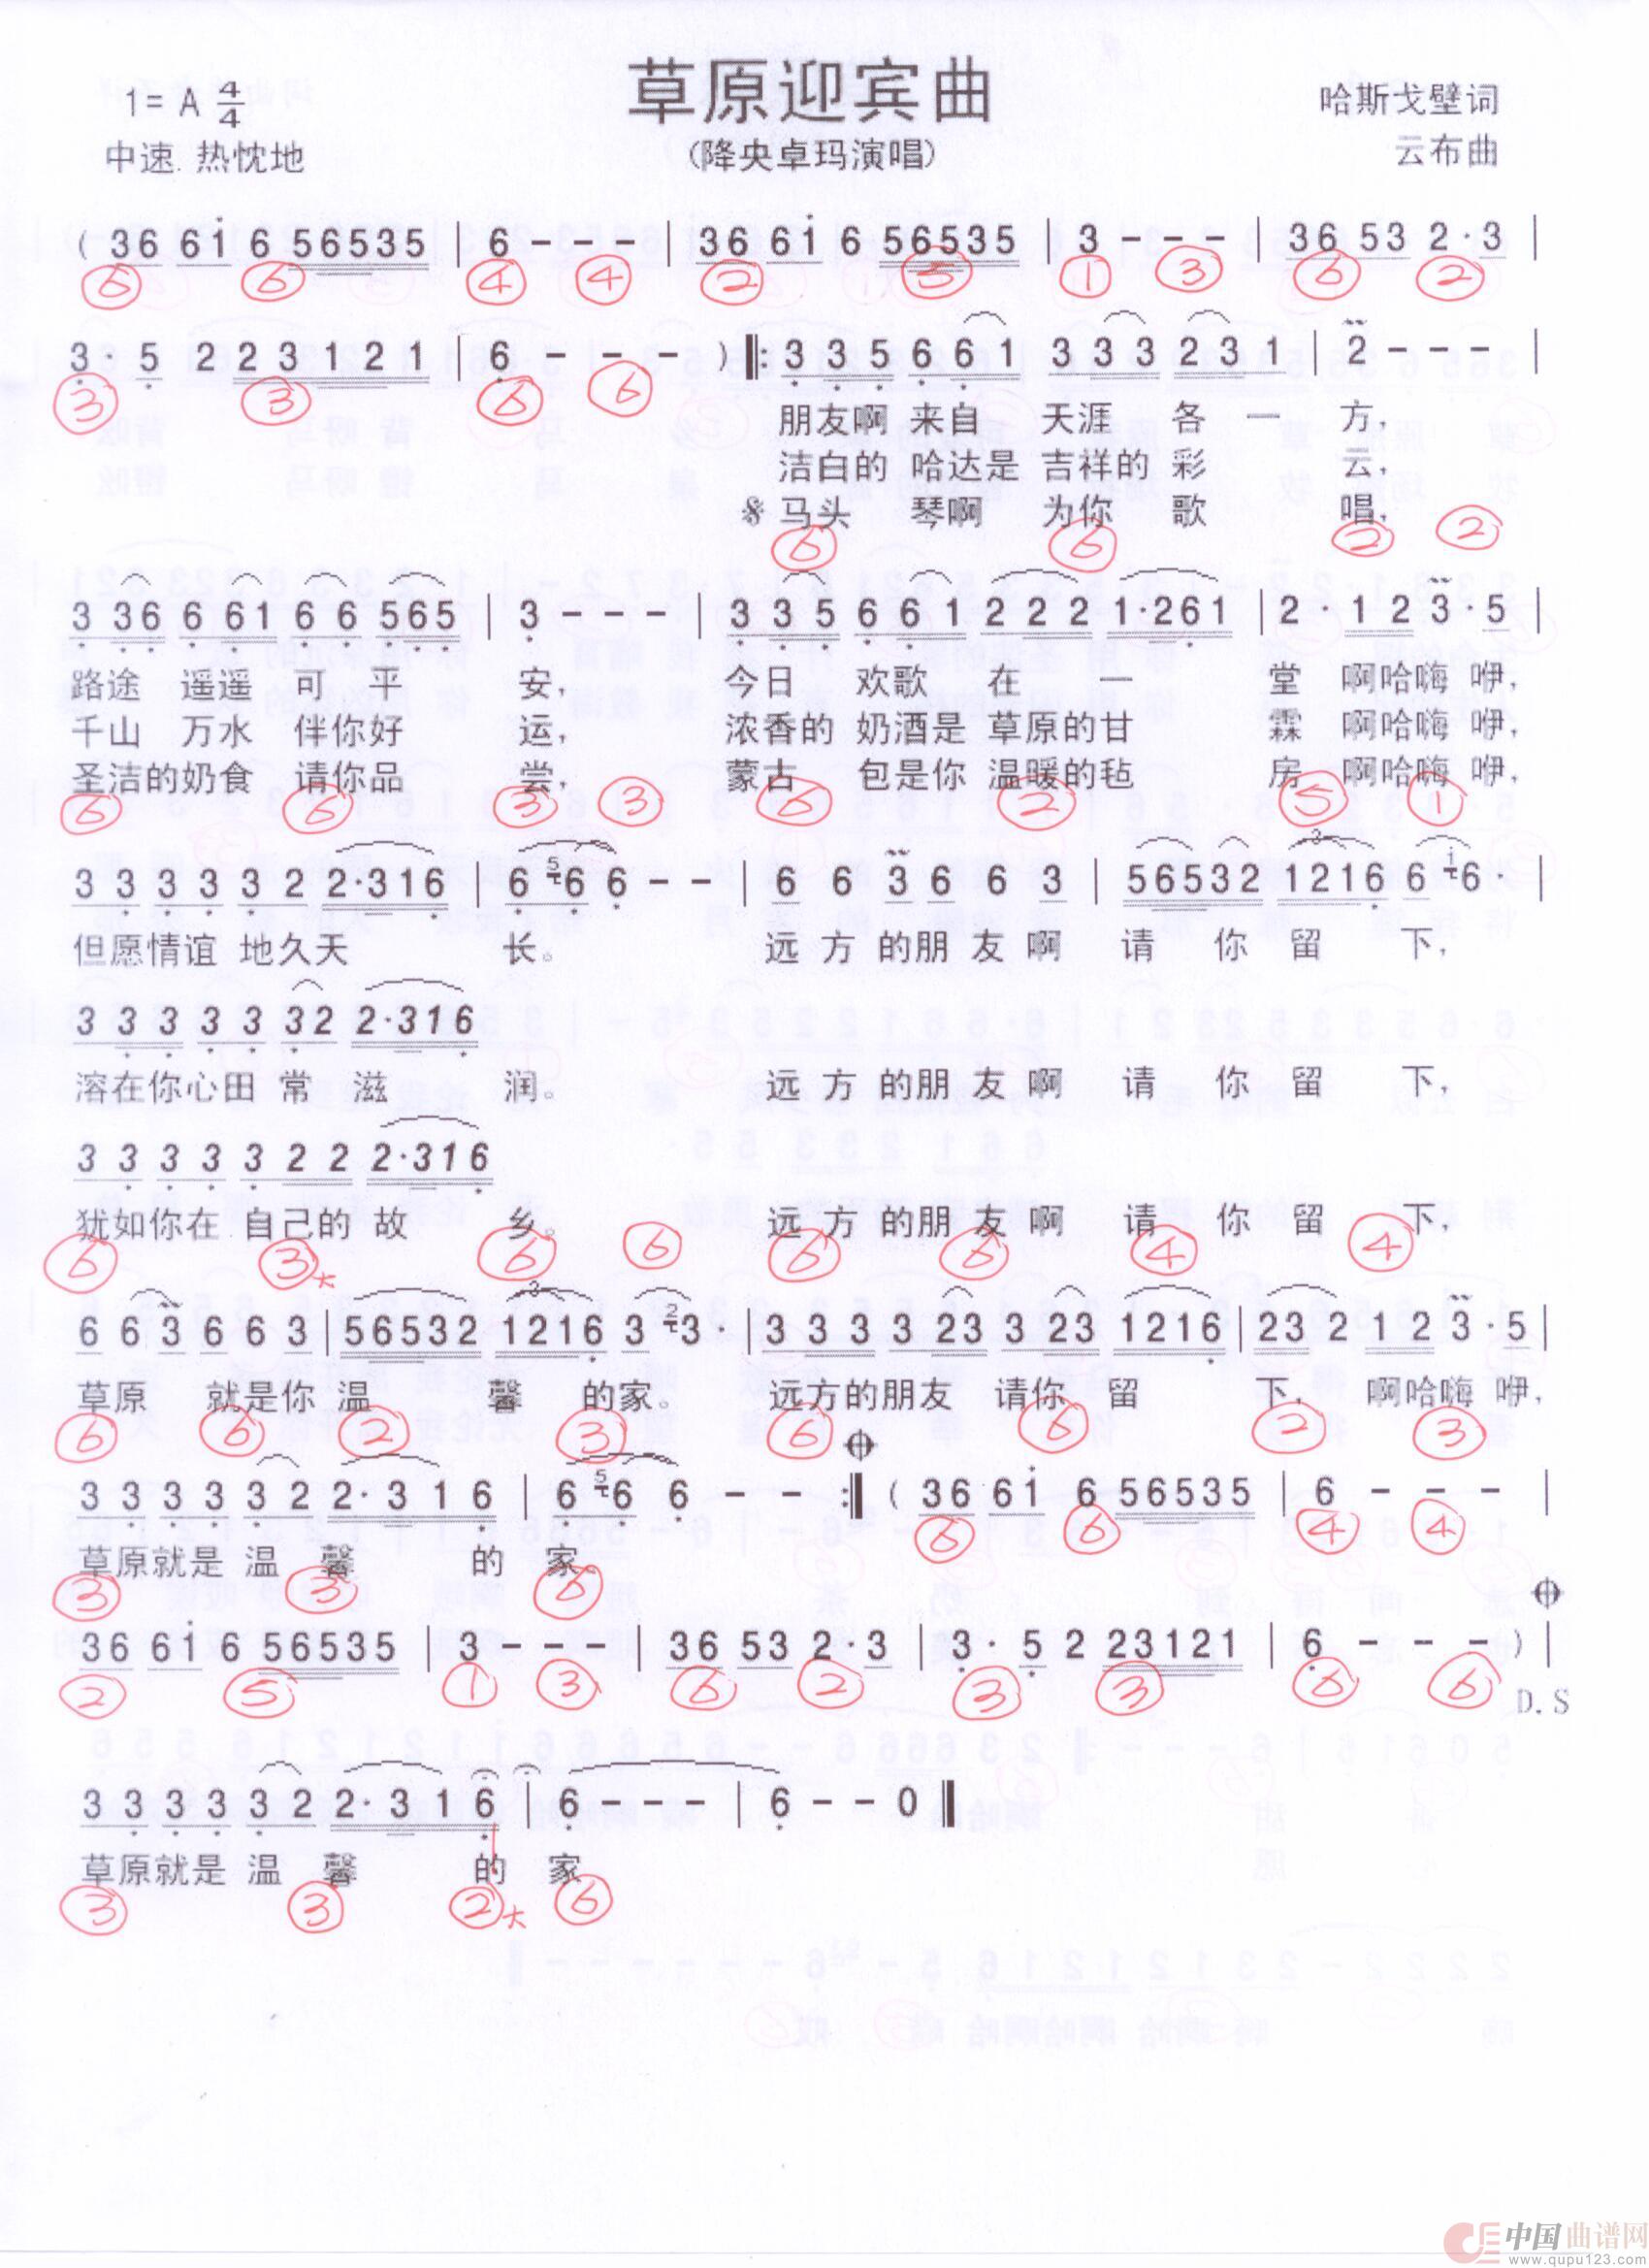 草原迎宾曲
1= A 4/4
哈斯戈壁词
中速 热忱地
(降央卓玛演唱)
云布曲
( 36 61 6 56535 | 6 - - - | 36 61 6 56535 | 3 - - - | 36 53 2·3 |
⑥ ⑥ ④ ④ ② ⑤ ① ③ ⑥ ②
3·5 2 23 121 | 6 - - - ) ‖: 3 3 5 6 6 1 3 3 3 2 3 1 | 2 - - - |
③ ③ ⑥ ⑥
朋友啊 来自 天涯 各 一 方,
洁白的 哈达是 吉祥的 彩 云,
马头 琴啊 为你 歌 唱,
⑥ ⑥ ② ②
3 36 6 61 6 6 565 | 3 - - - | 3 35 6 61 2 2 2 1·261 | 2· 12 3·5 |
路途 遥遥 可 平 安, 今日 欢歌 在 一 堂 啊哈嗨 咿,
千山 万水 伴你好 运, 浓香的 奶酒是 草原的甘 霖 啊哈嗨 咿,
圣洁的奶食 请你品 尝, 蒙古 包是你 温暖的毡 房 啊哈嗨 咿,
⑥ ⑥ ③ ③ ⑥ ② ⑤ ①
3 3 3 3 3 2 2·316 | 6 5 6 6 - - | 6 6 3 6 6 3 | 56532 1216 6 1 6 |
但愿情谊 地久天 长。 远 方 的朋 友 啊 请 你 留 下,
3 3 3 3 3 32 2·316
溶在你心田 常 滋 润。 远 方 的朋 友 啊 请 你 留 下,
3 3 3 3 3 2 2 2·316
犹如你在 自己的 故 乡。 远 方 的朋 友 啊 请 你 留 下,
⑥ ③ ⑥ ⑥ ⑥ ⑥ ④ ④
6 6 3 6 6 3 | 56532 1216 3 2 3· | 3 3 3 3 23 3 23 1216 | 23 2 12 3·5 |
草原 就是你 温 馨 的家。 远方的朋友 请你 留 下, 啊哈嗨 咿,
⑥ ⑥ ② ③ ⑥ ⑥ ② ③
3 3 3 3 3 2 2·3 1 6 | 6 5 6 6 - - :‖ ( 36 61 6 56535 | 6 - - - |
草原就是 温 馨 的 家。
③ ③ ⑥ ⑥ ⑥ ④ ④
36 61 6 56535 | 3 - - - | 36 53 2·3 | 3·5 2 23121 | 6 - - - ) |
② ⑤ ① ③ ⑥ ② ③ ③ ⑥ ⑥
D.S
3 3 3 3 3 2 2·3 1 6 | 6 - - - | 6 - - 0 ‖
草原就是 温 馨 的 家
③ ③ ② ⑥
中国曲谱网
www.qupu123.com